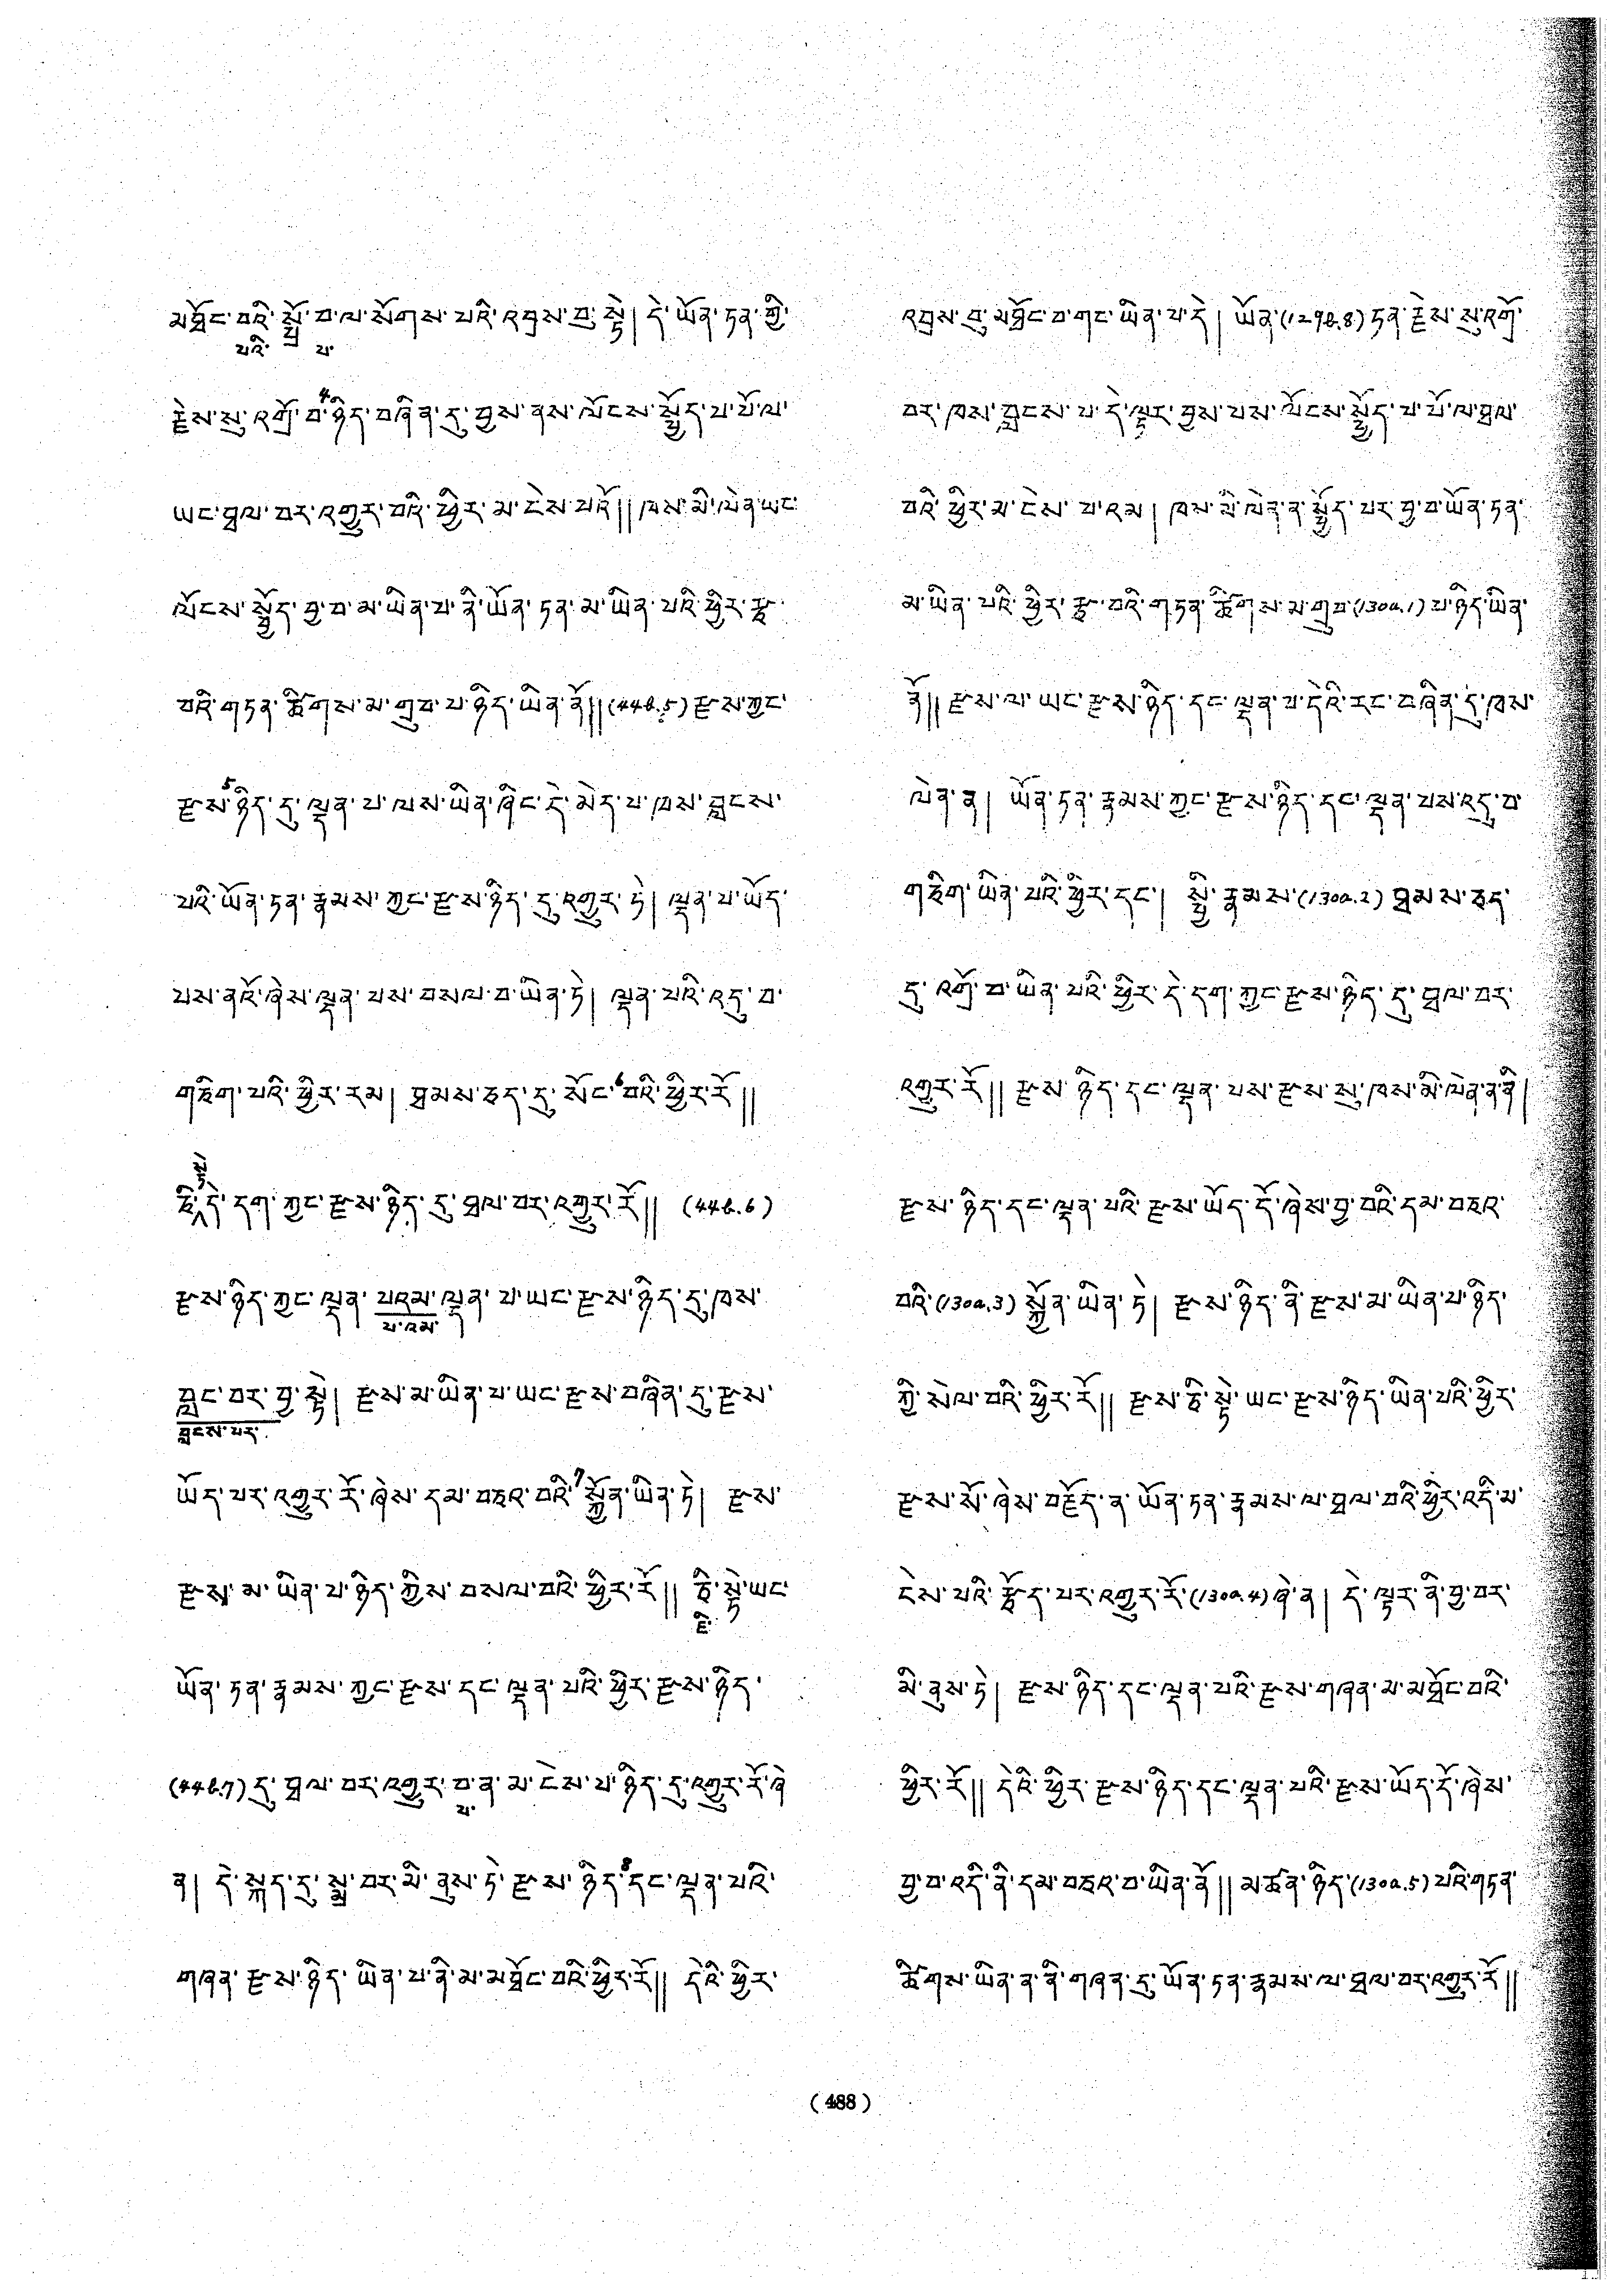 མཐོང་བའི་སྤྲོ་བ་ལ་སོགས་པའི་འབྲས་བུ་སྟེ། དེ་ཡོན་ཏན་གྱི་
པའི་ པ་
རྗེས་སུ་འགྲོ་བ་4ཉིད་བཞིན་དུ་བྱས་ནས་ལོངས་སྤྱོད་པ་པོ་ལ་
ཡང་ཐལ་བར་འགྱུར་བའི་ཕྱིར་མ་ངེས་པའོ།། ཁས་མི་ལེན་ཡང་
ལོངས་སྤྱོད་བྱ་བ་མ་ཡིན་པ་ནི་ཡོན་ཏན་མ་ཡིན་པའི་ཕྱིར་རྩ་
བའི་གཏན་ཚིགས་མ་གྲུབ་པ་ཉིད་ཡིན་ནོ།། (44b.5) རྫས་ཀྱང་
རྫས་5ཉིད་དུ་ལྡན་པ་ལས་ཡིན་ཞིང་དེ་མེད་པ་ཁས་བླངས་
པའི་ཡོན་ཏན་རྣམས་ཀྱང་རྫས་ཉིད་དུ་འགྱུར་ཏེ། ལྡན་པ་ཡོད་
པས་ནའོ་ཞེས་ལྡན་པས་བསལ་བ་ཡིན་ཏེ། ལྡན་པའི་འདུ་བ་
གཅིག་པའི་ཕྱིར་རམ། ཐམས་ཅད་དུ་སོང་6བའི་ཕྱིར་རོ།།
སྟེ་
ཅི་དེ་དག་ཀྱང་རྫས་ཉིད་དུ་ཐལ་བར་འགྱུར་རོ།། (44b.6)
རྫས་ཉིད་ཀྱང་ལྡན་པའམ་ལྡན་པ་ཡང་རྫས་ཉིད་དུ་ཁས་
པ་འམ་
བླང་བར་བྱ་སྟེ། རྫས་མ་ཡིན་པ་ཡང་རྫས་བཞིན་དུ་རྫས་
བླངས་པར་
ཡོད་པར་འགྱུར་རོ་ཞེས་དམ་བཅའ་བའི་7སྐྱོན་ཡིན་ཏེ། རྫས་
རྫས་མ་ཡིན་པ་ཉིད་ཀྱིས་བསལ་བའི་ཕྱིར་རོ།། ཅི་སྟེ་ཡང་
ཇི་
ཡོན་ཏན་རྣམས་ཀྱང་རྫས་དང་ལྡན་པའི་ཕྱིར་རྫས་ཉིད་
(44b.7) དུ་ཐལ་བར་འགྱུར་བ་ན་མ་ངེས་པ་ཉིད་དུ་འགྱུར་རོ་ཞེ་
པ་
ན། དེ་སྐད་དུ་སྨྲ་བར་མི་ནུས་ཏེ་རྫས་ཉིད་8དང་ལྡན་པའི་
གཞན་རྫས་ཉིད་ཡིན་པ་ནི་མ་མཐོང་བའི་ཕྱིར་རོ།། དེའི་ཕྱིར་
འབྲས་བུ་མཐོང་བ་གང་ཡིན་པ་དེ། ཡོན་(129b.8)ཏན་རྗེས་སུ་འགྲོ་
བར་ཁས་བླངས་པ་དེ་ལྟར་བྱས་པས་ལོངས་སྤྱོད་པ་པོ་ལ་ཐལ་
བའི་ཕྱིར་མ་ངེས་པ་འམ། ཁས་མི་ལེན་ན་སྤྱོད་པར་བྱ་བ་ཡོན་ཏན་
མ་ཡིན་པའི་ཕྱིར་རྩ་བའི་གཏན་ཚིགས་མ་གྲུབ་(130a.1)པ་ཉིད་ཡིན་
ནོ།། རྫས་ལ་ཡང་རྫས་ཉིད་དང་ལྡན་པ་དེའི་རང་བཞིན་དུ་ཁས་
ལེན་ན། ཡོན་ཏན་རྣམས་ཀྱང་རྫས་ཉིད་དང་ལྡན་པས་འདུ་བ་
གཅིག་ཡིན་པའི་ཕྱིར་དང་། སྤྱི་རྣམས་(130a.2) ཐམས་ཅད་
དུ་འགྲོ་བ་ཡིན་པའི་ཕྱིར་དེ་དག་ཀྱང་རྫས་ཉིད་དུ་ཐལ་བར་
འགྱུར་རོ།། རྫས་ཉིད་དང་ལྡན་པས་རྫས་སུ་ཁས་མི་ལེན་ན་ནི།
རྫས་ཉིད་དང་ལྡན་པའི་རྫས་ཡོད་དོ་ཞེས་བྱ་བའི་དམ་བཅའ་
བའི་(130a.3) སྐྱོན་ཡིན་ཏེ། རྫས་ཉིད་ནི་རྫས་མ་ཡིན་པ་ཉིད་
ཀྱི་སེལ་བའི་ཕྱིར་རོ།། རྫས་ཅི་སྟེ་ཡང་རྫས་ཉིད་ཡིན་པའི་ཕྱིར་
རྫས་སོ་ཞེས་བརྗོད་ན་ཡོན་ཏན་རྣམས་ལ་ཐལ་བའི་ཕྱིར་འདི་མ་
ངེས་པའི་རྩོད་པར་འགྱུར་རོ་(130a.4)ཞེ་ན། དེ་ལྟར་ནི་བྱ་བར་
མི་ནུས་ཏེ། རྫས་ཉིད་དང་ལྡན་པའི་རྫས་གཞན་མ་མཐོང་བའི་
ཕྱིར་རོ།། དེའི་ཕྱིར་རྫས་ཉིད་དང་ལྡན་པའི་རྫས་ཡོད་དོ་ཞེས་
བྱ་བ་འདི་ནི་དམ་བཅའ་བ་ཡིན་ནོ།། མཚན་ཉིད་(130a.5)པའི་གཏན་
ཚིགས་ཡིན་ན་ནི་གཞན་དུ་ཡོན་ཏན་རྣམས་ལ་ཐལ་བར་འགྱུར་རོ།།
(488)